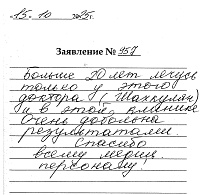 15. 10 2025г.
Заявление № 957
Больше 20 лет лечусь
только у этого
доктора (Шаккулян)
и в этой клинике
Очень довольна
результатами.
Спасибо
всему медиц.
персоналу!